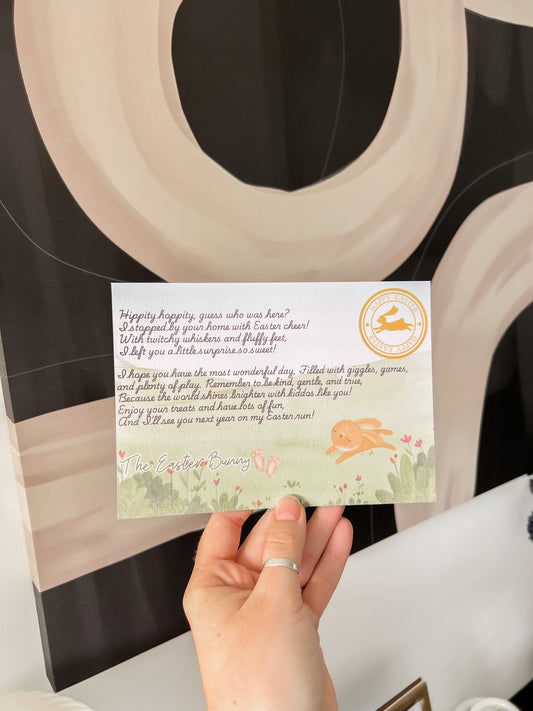 Hippity hoppity, guess who was here?
I stopped by your home with Easter cheer!
With twitchy whiskers and fluffy feet,
I left you a little surprise so sweet!
I hope you have the most wonderful day. Filled with giggles, games,
and plenty of play. Remember to be kind, gentle, and true,
Because the world shines brighter with kiddos like you!
Enjoy your treats and have lots of fun,
And I'll see you next year on my Easter run!
The Easter Bunny
HAPPY EASTER
HAPPY EASTER